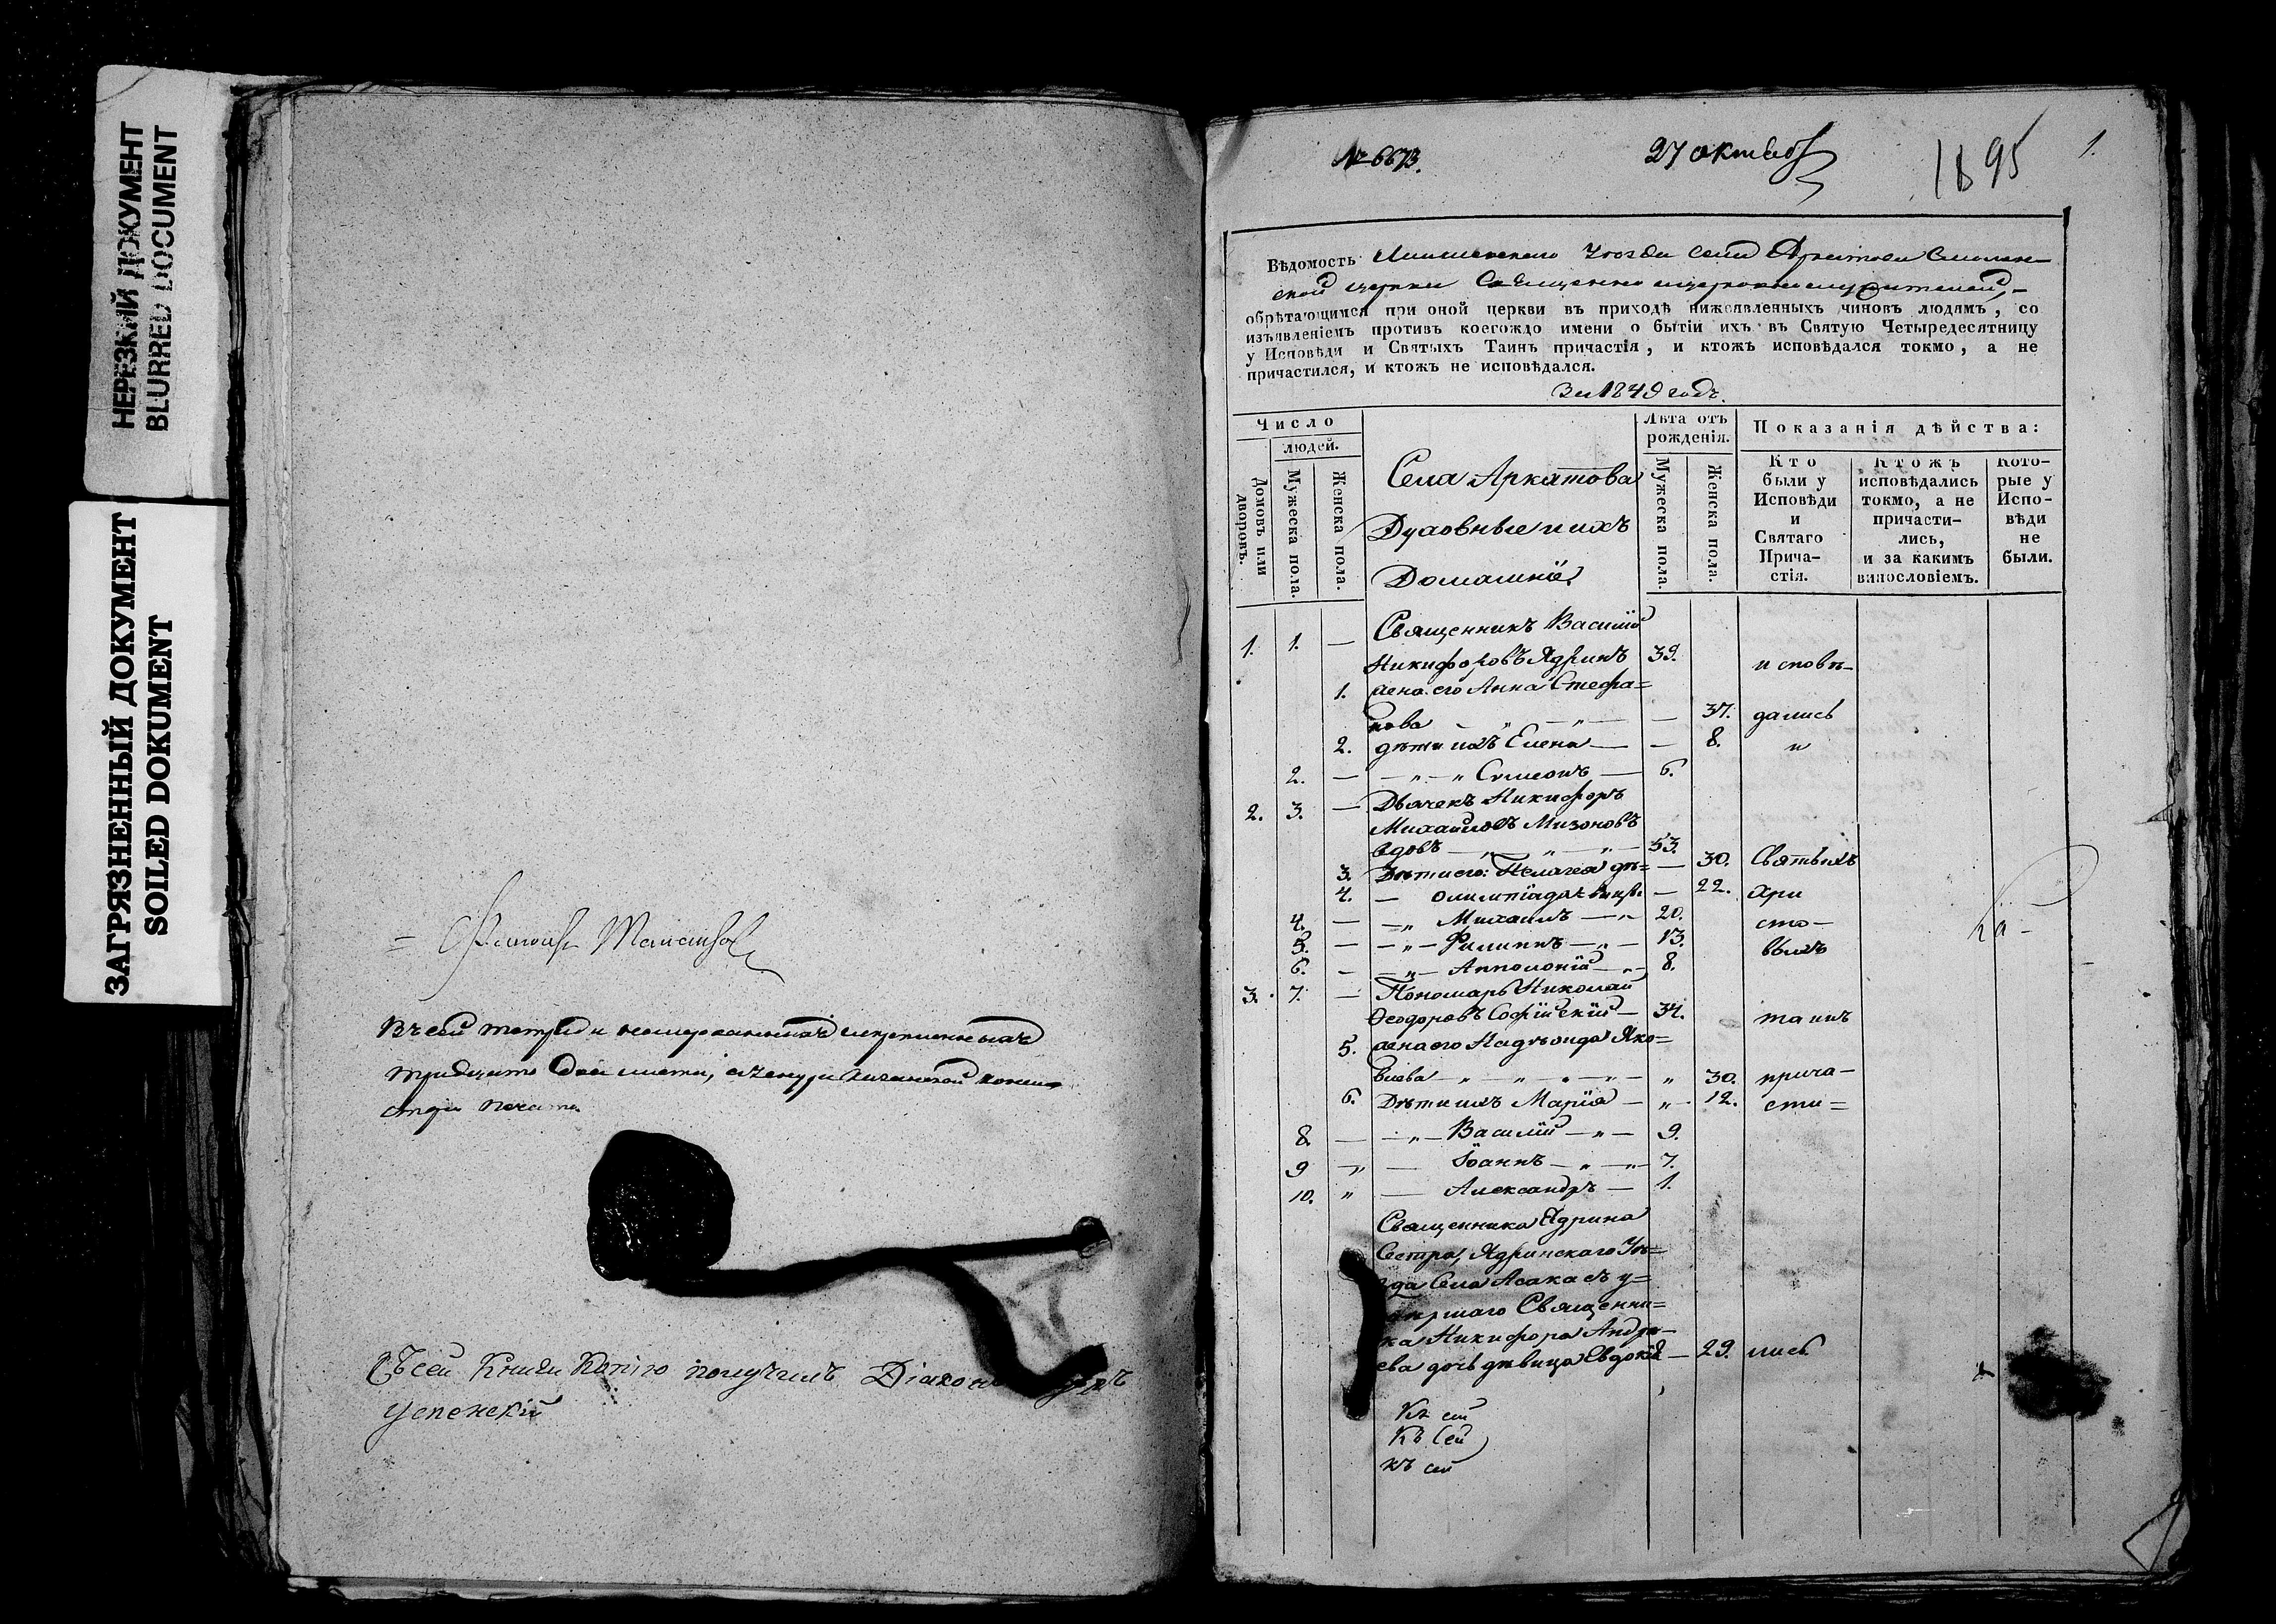 НЕРЕЗКИЙ ДОКУМЕНТ
BLURRED DOCUMENT
ЗАГРЯЗНЕННЫЙ ДОКУМЕНТ
SOILED DOKUMENT
Въ сей тетради
тридцать два листа,
печать
Съ сей Книги Копію получилъ Діаконъ
Успенскій
№ 6673.
27 октяб
1895
1.
Вѣдомость уезда села Аркатова Смолен-
ской церкви Священно
обрѣтающимся при оной церкви въ приходѣ нижеявленныхъ чиновъ людямъ, со
изъявленіемъ противъ коегождо имени о бытіи ихъ въ Святую Четыредесятницу
у Исповѣди и Святыхъ Таинъ причастія, и ктожъ исповѣдался токмо, а не
причастился, и ктожъ не исповѣдался.
За 1849 годъ.
Число
людей.
Домовъ или дворовъ.
Мужеска пола.
Женска пола.
Села Аркатова
Духовные и ихъ
Домашніе
Лѣта отъ
рожденія.
Мужеска пола.
Женска пола.
Показанія дѣйства:
Кто
были у
Исповѣди
и
Святаго
Прича-
стія.
Ктожъ
исповѣдались
токмо, а не
причасти-
лись,
и за какимъ
винословіемъ.
Кото-
рые у
Испо-
вѣди
не
были.
1. 1. — Священникъ Василій
Никифоровъ Ядринъ 39. исповѣ-
1. жена его Анна Стефа=
нова — „ — „ — — 37. дались
2. дѣти ихъ Елена — — 8. и
2. — — „ — „ Симеонъ — 6.
2. 3. — Дьячекъ Никифоръ
Михайловъ Мизоновъ
вдовъ — „ — „ — „ — 53.
3. Дѣти его: Пелагея дѣ= — 30. Святыхъ
4. — Олимпіада — 22. Хри
4. — — „ Михаилъ — „ 20. сто-
5. — — „ — Филиппъ — „ — 13. выхъ
6. — — „ — Апполоній — „ 8.
3. 7. — Пономарь Николай
Феодоровъ Софійскій — 34. таинъ
5. жена его Надежда Яко=
влева — „ — „ — „ — „ — „ 30. прича-
6. Дѣти ихъ Марія — „ 12. сти=
8. — — „ — Василій — „ — 9.
9 — „ — Іоаннъ — „ — „ — 7.
10. „ — Александръ — 1.
Священника Ядрина
Сестра, Ядринскаго Уѣ=
зда Села Асакасъ у=
мершаго Священни=
ка Никифора Андре-
ева дочь дѣвица Евдокія — 29. лись
Къ сей
Къ Сей
къ сей